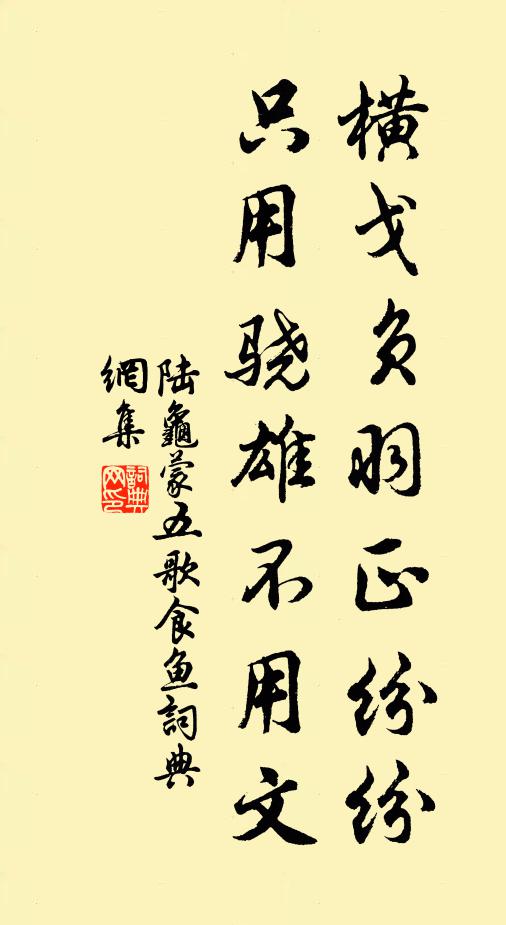 横戈负羽正纷纷
只用骁雄不用文
陆龜蒙五歌食鱼詞典
網集
詞典
网印